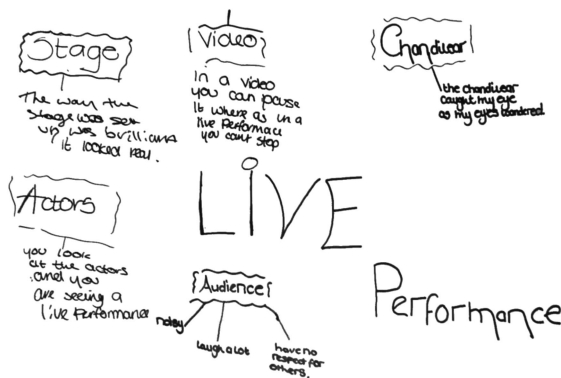 Stage
The way the
stage was set
up was brilliant
it looked real.
Video
In a video
you can pause
it where as in a
live performace
you cant stop
Chandiuear
the chandiuear
caught my eye
as my eyes wandered
LiVE
Performance
Actors
you look
at the actors
and you
are seeing a
live Performance
Audience
noisy
laugh a lot
have no
respect for
others.